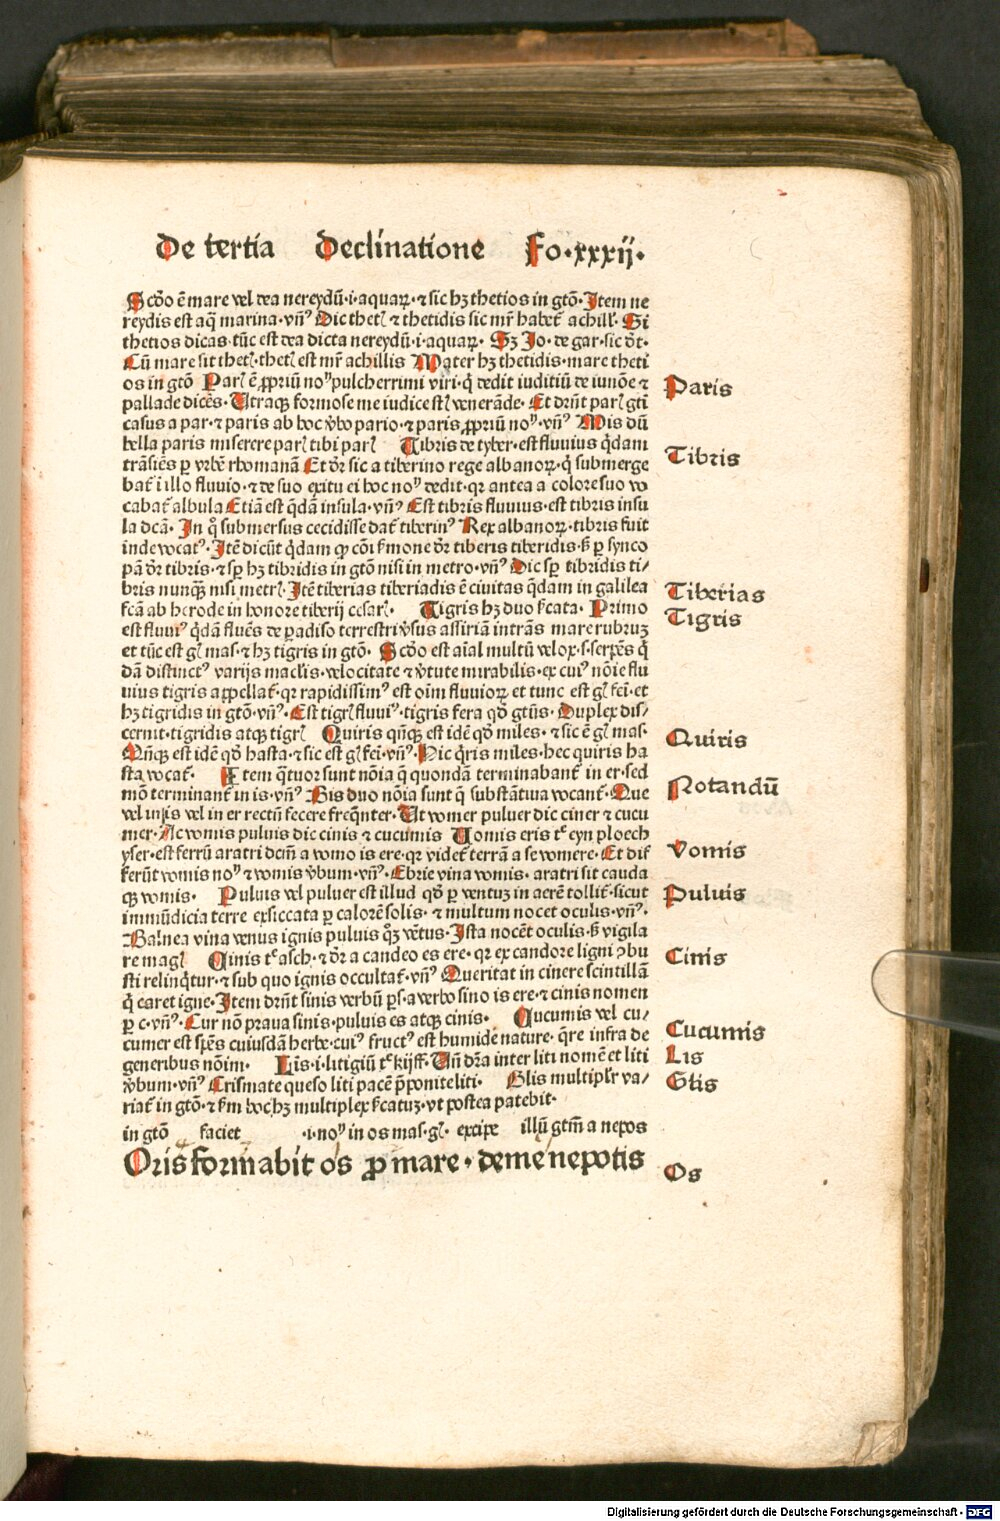 De tertia Declinatione Fo.xxxij.
Scďo ē mare vel dea nereydū.i.aquaꝝ.⁊ sic hꝫ thetios in gtō.Item ne
reydis est aq̄ marina.vn̄ꝰ Dic thetꝭ ⁊ thetidis sic mr̄ habet̄ achill'.Si
thetios dicas tūc est dea dicta nereydū.i.aquaꝝ. Sꝫ Jo.de gar.sic ďt.
Cū mare sit thetꝭ.thetꝭ est mr̄ achillis Mater hꝫ thetidis.mare theti
os in gtō Parꝭ ē ꝓpriū noⁿ pulcherrimi viri.q̇ dedit iuditiū de iunōe ⁊
pallade dicēs.Utraqꝫ formose me iudice stꝭ venerāde. Et dr̄nt parꝭ gtī
casus a par.⁊ paris ab hoc v̇bo pario.⁊ paris ꝓpriū noⁿ.vn̄ꝰ Mis dū
bella paris miserere parꝭ tibi parꝭ Tibris de tyber.est fluuius q̇dam
trāsiēs ꝑ vrbē rhomanā Et ďr sic a tiberino rege albanoꝝ.q̇ submerge
bat̄ ī illo fluuio.⁊ de suo exitu ei hoc noⁿ dedit.qr antea a colore suo vo
cabat̄ albula Etiā est q̇dā insula.vn̄ꝰ Est tibris fluuius.est tibris insu
la dcā. In q̊ submersus cecidisse dat̄ tiberinꝰ Rex albanoꝝ.tibris fuit
inde vocatꝰ.Itē dicūt q̇dam ꝙ cōi ẜmone ďr tiberis tiberidis.ẜ ꝑ synco
pā ďr tibris.⁊ sꝑ hꝫ tibridis in gtō nisi in metro.vn̄ꝰ Dic sꝑ tibridis ti/
bris nunqꝫ nisi metrꝭ.Itē tiberias tiberiadis ē ciuitas q̇dam in galilea
fcā ab herode in honore tiberij cesarꝭ. Tigris hꝫ duo ẜcata. Primo
est fluuiꝰ q̇dā fluēs de ꝑadiso terrestri v̇sus assiriā intrās mare rubruꝫ
et tūc est gꝭ mas.⁊ hꝫ tigris in gtō. Scďo est aīal multū velox.s.serpēs q̇
dā distinctꝰ varijs macl'is.velocitate ⁊ v̇tute mirabilis.ex cuiꝰ nōie flu
uius tigris appellat̄.qr rapidissimꝰ est oīm fluuioꝝ et tunc est gꝭ fei.et
hꝫ tigridis in gtō.vn̄ꝰ.Est tigrꝭ fluuiꝰ.tigris fera qďo gtūs. Duplex dis/
cernit.tigridis atqꝫ tigrꝭ Quiris qn̄qꝫ est idē qďo miles.⁊ sic ē gꝭ mas.
Qn̄qꝫ est idē qďo hasta.⁊ sic est gꝭ fei.vn̄ꝰ.Hic q̇ris miles.hec quiris ha
sta vocat̄. Item q̇tuor sunt nōia q̄ quondā terminabant̄ in er.sed
mō terminant̄ in is.vn̄ꝰ Bis duo nōia sunt q̄ substātiua vocant̄.Que
vel in is vel in er rectū fecere freq̄nter.Ut vomer puluer dic ciner ⁊ cucu
mer.Ac vomis puluis dic cinis ⁊ cucumis Uomis eris tͤ eyn ploech
yser.est ferrū aratri dcm̄ a vomo is ere.qr videt̄ terrā a se vomere.Et dif
ferūt vomis noⁿ ⁊ vomis v̇bum.vn̄ꝰ.Ebrie vina vomis. aratri sit cauda
qꝫ vomis. Puluis vel puluer est illud qďo ꝑ ventuꝫ in aerē tollit̄.sicut
immūdicia terre exsiccata ꝑ calorē solis.⁊ multum nocet oculis.vn̄ꝰ.
Balnea vina venus ignis puluis qꝫ vētus.Ista nocēt oculis.ẜ vigila
re magꝭ Cinis tͤ asch.⁊ ďr a candeo es ere.qr ex candore ligni ↄbu
sti relinq̇tur.⁊ sub quo ignis occultat̄.vn̄ꝰ Queritat in cinere scintillā
q̇ caret igne.Item dr̄nt sinis verbū ꝑ s.a verbo sino is ere.⁊ cinis nomen
ꝑ c.vn̄ꝰ.Cur nō praua sinis.puluis es atqꝫ cinis. Cucumis vel cu/
cumer est spēs cuiusdā herbe.cuiꝰ fructꝰ est humide nature.q̄re infra de
generibus nōim. Lis.i.litigiū tͤ kijff.Un̄ dr̄a inter liti nomē et liti
v̇bum.vn̄ꝰ Crismate queso liti pacē p̄ponite liti. Glis multipl'r va/
riat̄ in gtō.⁊ ẜm hoc hꝫ multiplex ẜcatuꝫ.vt postea patebit.
in gtō faciet .i.noⁿ in os mas.gꝭ. excipe illū gtm̄ a nepos
Oris formabit os ꝓ mare.deme nepotis
Paris
Tibris
Tiberias
Tigris
Quiris
Notandū
Vomis
Puluis
Cinis
Cucumis
Lis
Glis
Os
Digitalisierung gefördert durch die Deutsche Forschungsgemeinschaft - DFG